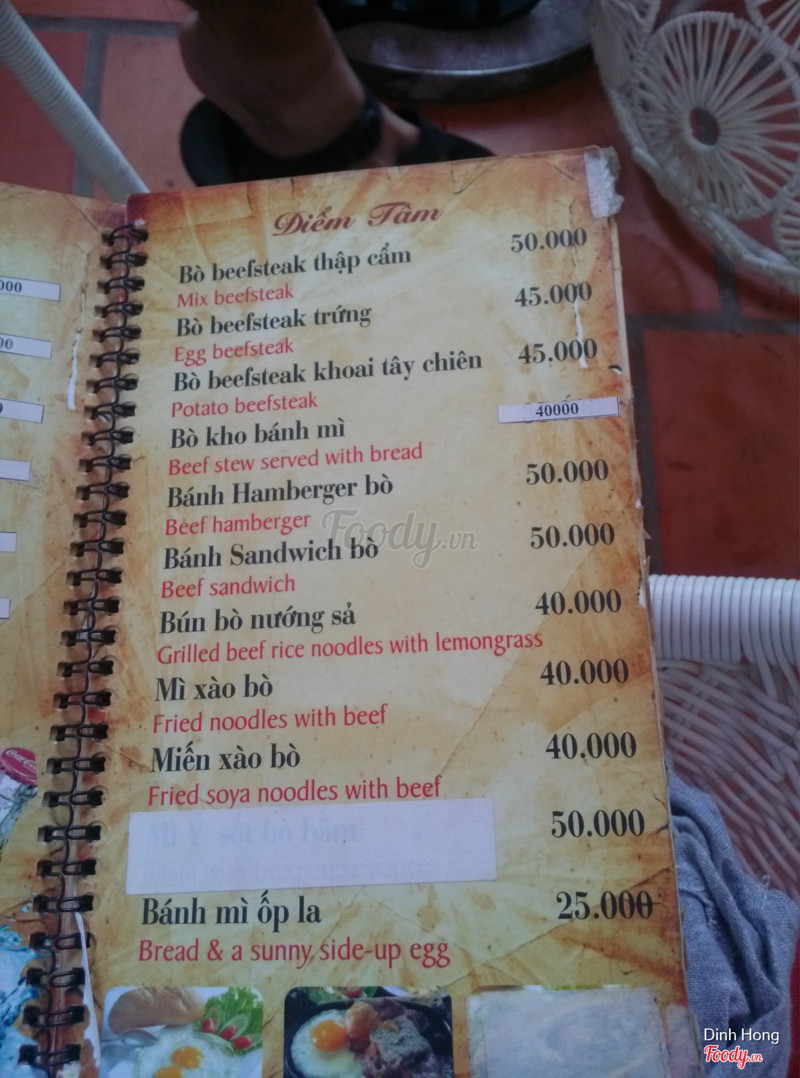 Điểm Tâm
Bò beefsteak thập cẩm 50.000
Mix beefsteak
Bò beefsteak trứng 45.000
Egg beefsteak
Bò beefsteak khoai tây chiên 45.000
Potato beefsteak
Bò kho bánh mì 40000
Beef stew served with bread
Bánh Hamberger bò 50.000
Beef hamberger
Bánh Sandwich bò 50.000
Beef sandwich
Bún bò nướng sả 40.000
Grilled beef rice noodles with lemongrass
Mì xào bò 40.000
Fried noodles with beef
Miến xào bò 40.000
Fried soya noodles with beef
Mì Ý sốt bò bằm 50.000
Bánh mì ốp la 25.000
Bread & a sunny side-up egg
Foody.vn
Coca-Cola
Dinh Hong
Foody.vn